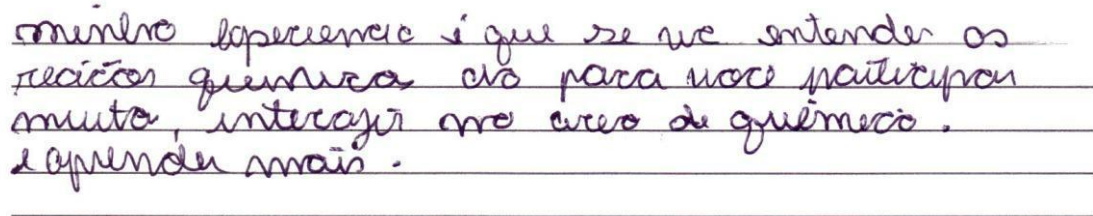 minha experiencia é que se vc entender as
reações quimica da para voce participar
muito, interagir na area de química.
e aprender mais.